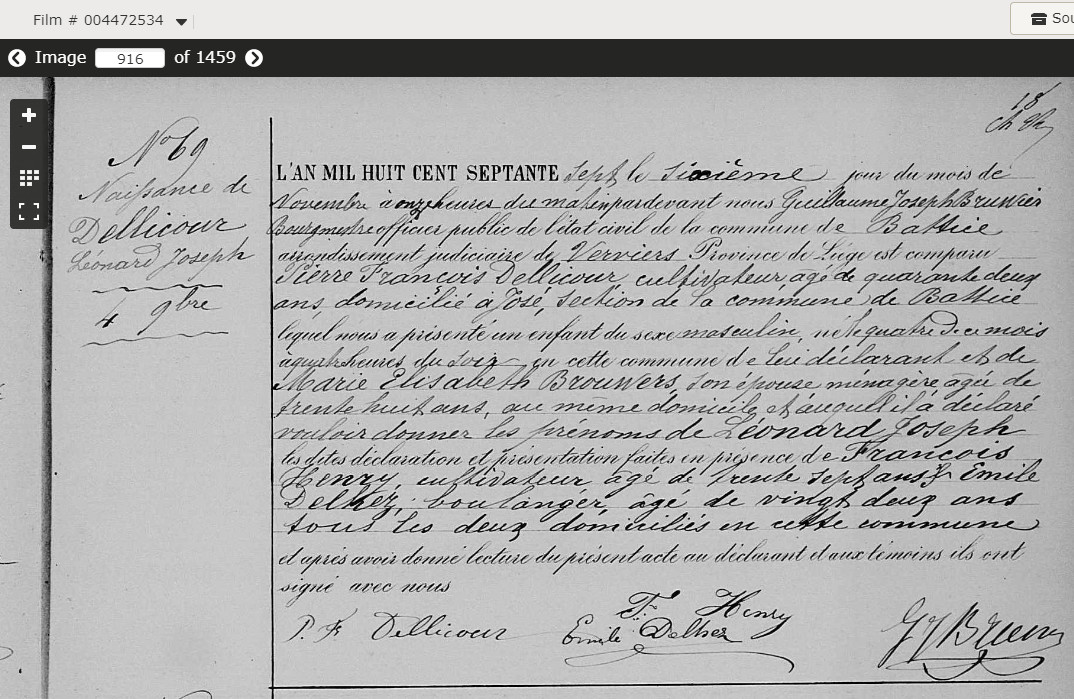 Film # 004472534
Sou
Image 916 of 1459
18
N° 69
Naissance de
Dellicour
Léonard Joseph
4 9bre
L'AN MIL HUIT CENT SEPTANTE sept le sixième jour du mois de
Novembre à onze heures du matin pardevant nous Guillaume Joseph
Bourgmestre officier public de l'état civil de la commune de Battice
arrondissement judiciaire de Verviers Province de Liège est comparu
Pierre François Dellicour cultivateur, âgé de quarante deux
ans, domicilié à José, section de la commune de Battice
lequel nous a présenté un enfant du sexe masculin, né le quatre de ce mois
à quatre heures du soir en cette commune de lui déclarant et de
Marie Elisabeth Brouwers, son épouse ménagère âgée de
trente huit ans, au même domicile et auquel il a déclaré
vouloir donner les prénoms de Léonard Joseph
les dites déclaration et présentation faites en présence de François
Henry, cultivateur âgé de trente sept ans & Emile
Delhez, boulanger, âgé de vingt deux ans
tous les deux domiciliés en cette commune
et après avoir donné lecture du présent acte au déclarant et aux témoins ils ont
signé avec nous
P. F. Dellicour
F. Henry
Emile Delhez